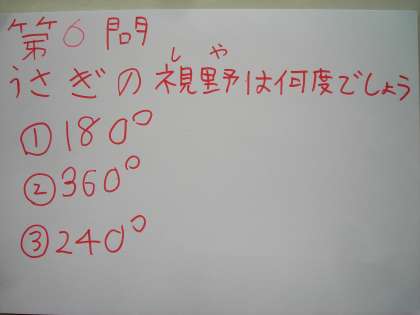 第6問
しや
うさぎの視野は何度でしょう
①180°
②360°
③240°